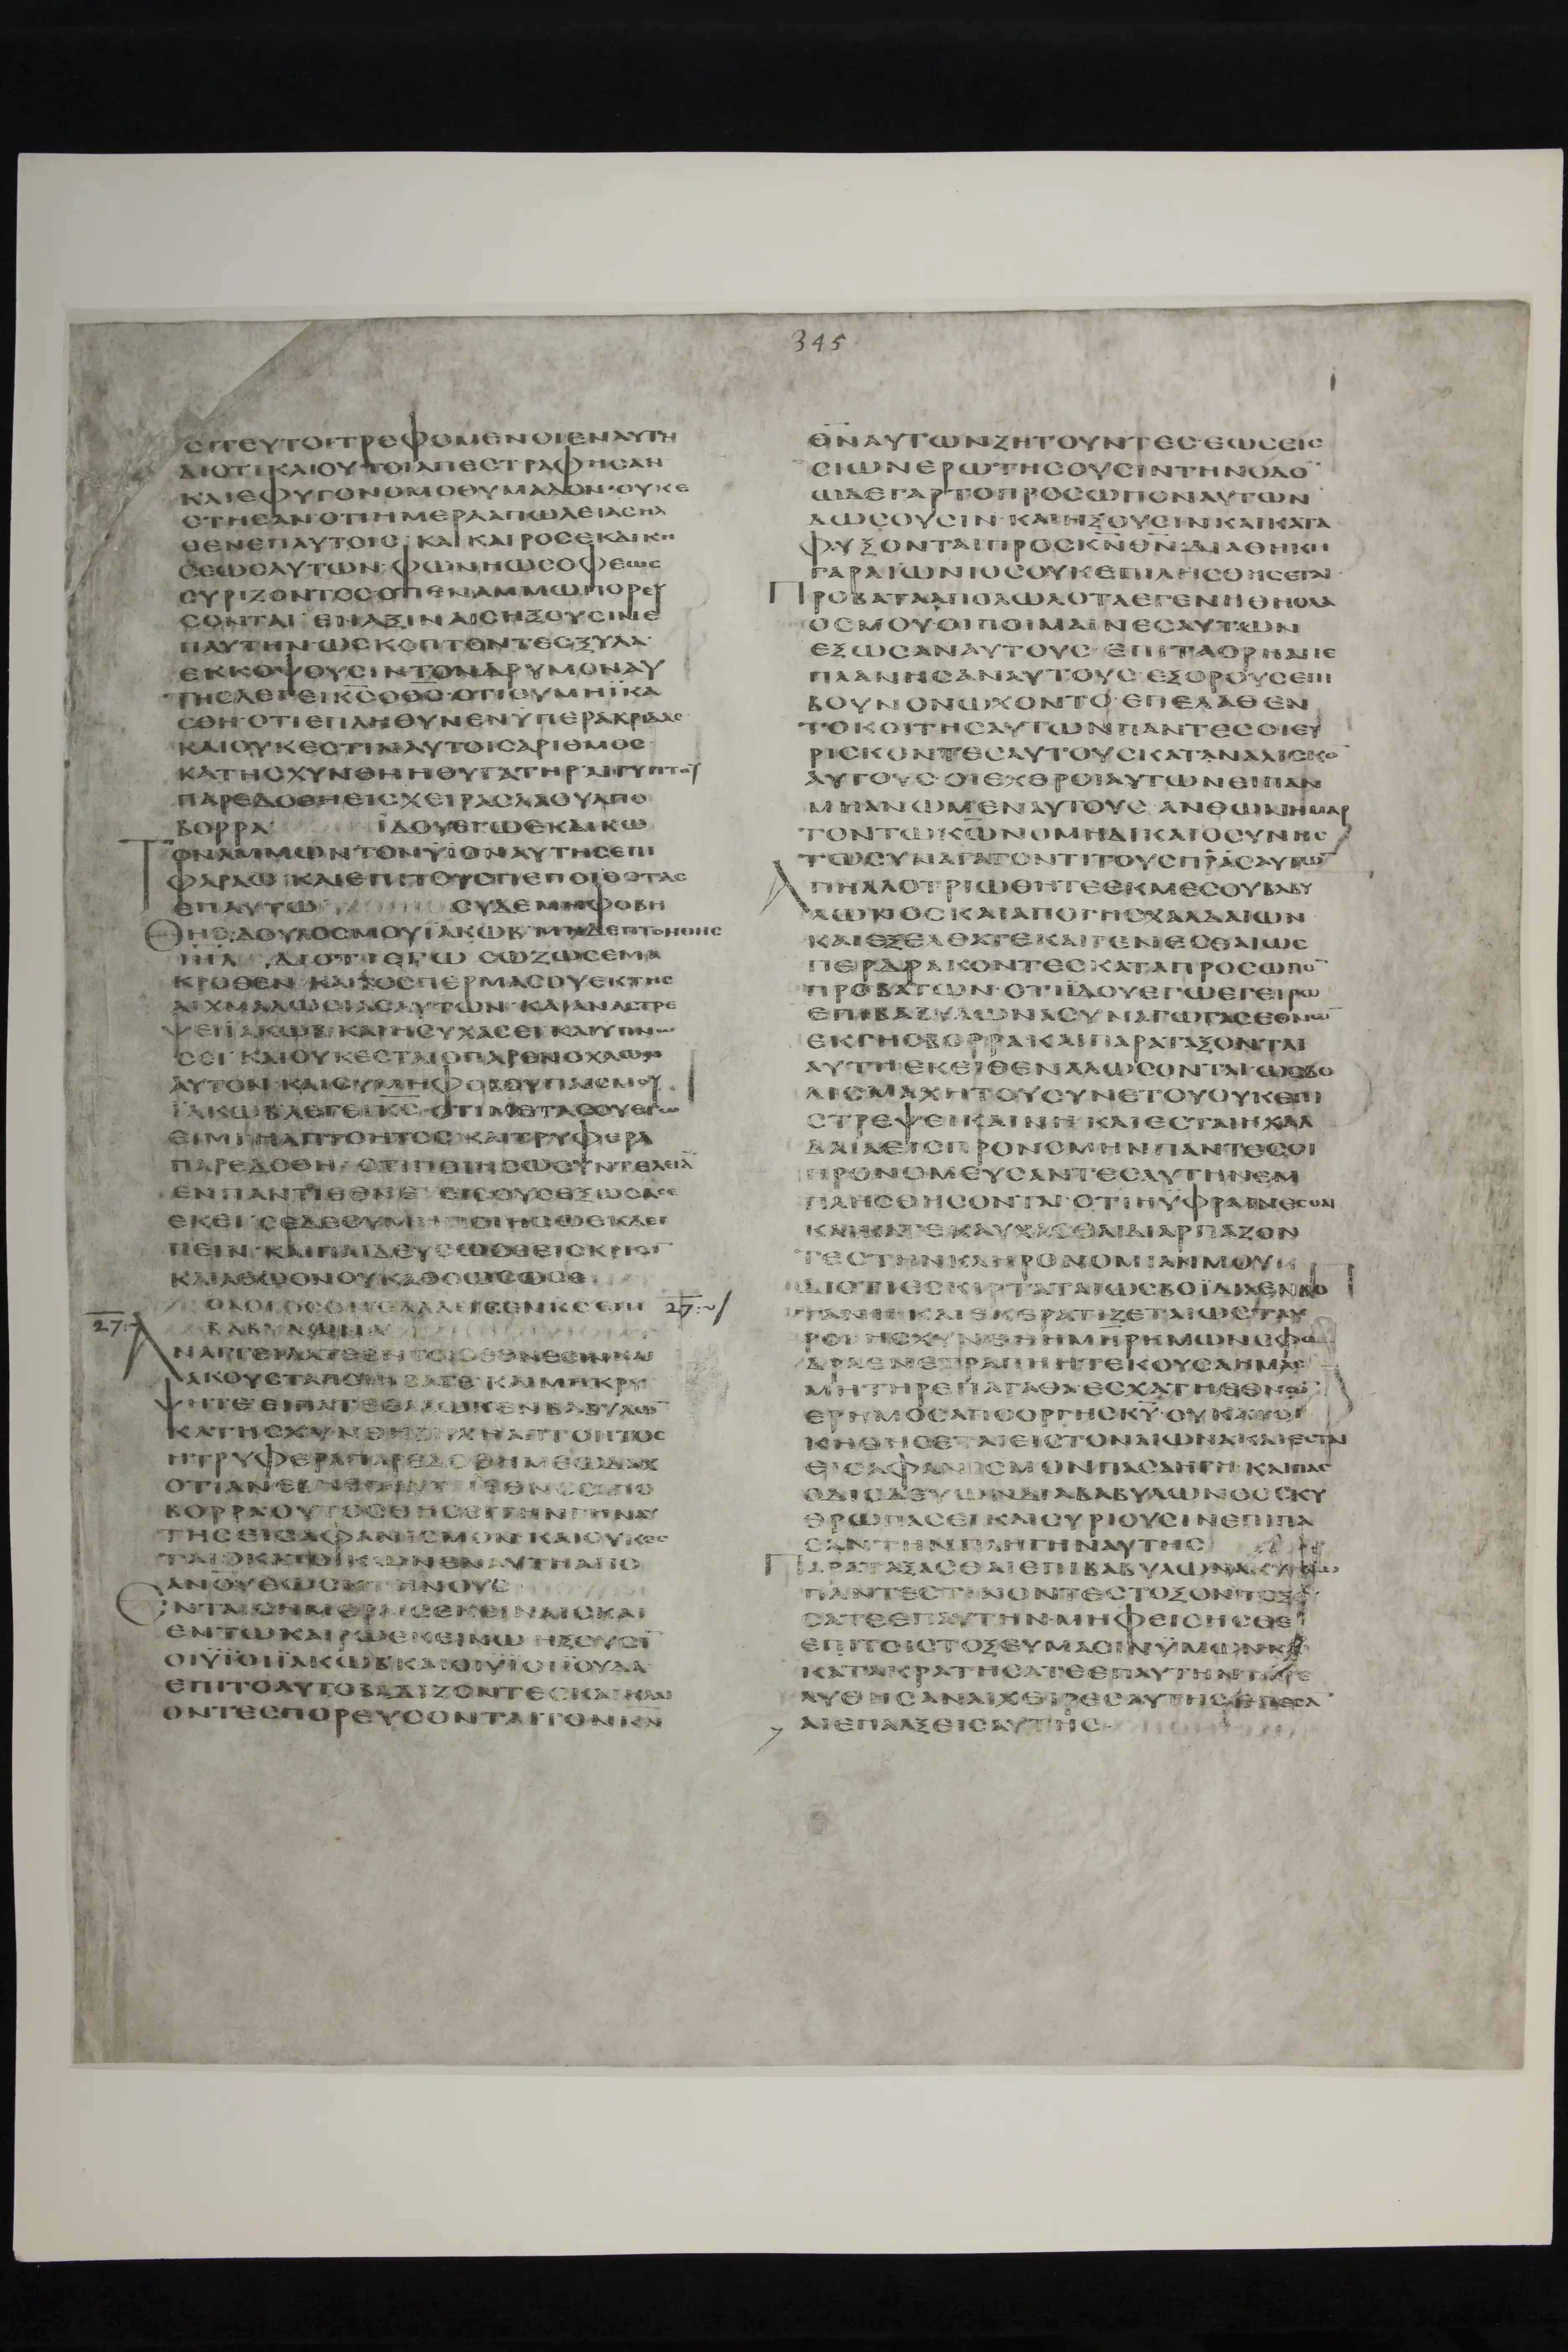 345
ϹΙΤΕΥΤΟΙΤΡΕΦΟΜΕΝΟΙΕΝΑΥΤΗ
ΔΙΟΤΙΚΑΙΟΥΤΟΙΑΠΕϹΤΡΑΦΗϹΑΝ
ΚΑΙΕΦΥΓΟΝΟΜΟΘΥΜΑΔΟΝ·ΟΥΚΕ
ϹΤΗϹΑΝ·ΟΤΙΗΜΕΡΑΑΠΩΛΕΙΑϹΗΛ
ΘΕΝΕΠΑΥΤΟΙϹ· ΚΑΙΚΑΙΡΟϹΕΚΔΙΚΗ
ϹΕΩϹΑΥΤΩΝ·ΦΩΝΗΩϹΟΦΕΩϹ
ϹΥΡΙΖΟΝΤΟϹΟΤΙΕΝΑΜΜΩΠΟΡΕΥ
ϹΟΝΤΑΙ ΕΝΑΞΙΝΑΙϹΗΞΟΥϹΙΝΕ
ΠΑΥΤΗΝ·ΩϹΚΟΠΤΟΝΤΕϹΞΥΛΑ·
ΕΚΚΟΨΟΥϹΙΝΤΟΝΔΡΥΜΟΝΑΥ
ΤΗϹΛΕΓΕΙΚϹΟΘϹ·ΟΤΙΟΥΜΗΪΚΑ
ϹΘΗ·ΟΤΙΕΠΛΗΘΥΝΕΝΫΠΕΡΑΚΡΙΔΑϹ
ΚΑΙΟΥΚΕϹΤΙΝΑΥΤΟΙϹΑΡΙΘΜΟϹ·
ΚΑΤΗϹΧΥΝΘΗΗΘΥΓΑΤΗΡΑΙΓΥΠΤΟΥ
ΠΑΡΕΔΟΘΗΕΙϹΧΕΙΡΑϹΛΑΟΥΑΠΟ
ΒΟΡΡΑ· ΪΔΟΥΕΓΩΕΚΔΙΚΩ
ΤΟΝΑΜΜΩΝΤΟΝΥΪΟΝΑΥΤΗϹΕΠΙ
ΦΑΡΑΩ·ΚΑΙΕΠΙΤΟΥϹΠΕΠΟΙΘΟΤΑϹ
ΕΠΑΥΤΩ ϹΥΔΕΜΗΦΟΒΗ
ΘΗϹ·ΔΟΥΛΟϹΜΟΥΪΑΚΩΒ·ΜΗΔΕΠΤΟΗΘΗϹ
ΙΗΛ ΔΙΟΤΙΕΓΩ ϹΩΖΩϹΕΜΑ
ΚΡΟΘΕΝ· ΚΑΙΤΟϹΠΕΡΜΑϹΟΥΕΚΤΗϹ
ΑΙΧΜΑΛΩϹΙΑϹΑΥΤΩΝ· ΚΑΙΑΝΑϹΤΡΕ
ΨΕΙΪΑΚΩΒ·ΚΑΙΗϹΥΧΑϹΕΙΚΑΙΥΠΝΩ
ϹΕΙ·ΚΑΙΟΥΚΕϹΤΑΙΟΠΑΡΕΝΟΧΛΩΝ
ΑΥΤΟΝ·ΚΑΙϹΥΜΗΦΟΒΟΥΠΑΙϹΜΟΥ
ΪΑΚΩΒΛΕΓΕΙΚϹ·ΟΤΙΜΕΤΑϹΟΥΕΓΩ
ΕΙΜΙ·ΗΑΠΤΟΗΤΟϹΚΑΙΤΡΥΦΕΡΑ
ΠΑΡΕΔΟΘΗ·ΟΤΙΠΟΙΗϹΩϹΥΝΤΕΛΕΙΑ
ΕΝΠΑΝΤΙΕΘΝΕΙ ΕΙϹΟΥϹΕΞΩϹΑϹΕ
ΕΚΕΙ·ϹΕΔΕΟΥΜΗΠΟΙΗϹΩΕΚΛΕΙ
ΠΕΙΝ·ΚΑΙΠΑΙΔΕΥϹΩϹΕΕΙϹΚΡΙΜΑ
ΚΑΙΑΘΩΟΝΟΥΚΑΘΩΩϹΩϹΕ
ΟΛΟΓΟϹΟΝΕΛΑΛΗϹΕΝΚϹΕΠΙ 27
27 ΒΑΒΥΛΩΝΑ
ΑΝΑΓΓΕΙΛΑΤΕΕΝΤΟΙϹΕΘΝΕϹΙΝΚΑΙ
ΑΚΟΥϹΤΑΠΟΙΗϹΑΤΕ·ΚΑΙΜΗΚΡΥ
ΨΗΤΕ·ΕΙΠΑΤΕΕΑΛΩΚΕΝΒΑΒΥΛΩ
ΚΑΤΗϹΧΥΝΘΗ ΗΑΠΤΟΗΤΟϹ
ΗΤΡΥΦΕΡΑΠΑΡΕΔΟΘΗΜΕΩΔΑΧ
ΟΤΙΑΝΕΒΗΕΠΑΥΤΗΕΘΝΟϹΑΠΟ
ΒΟΡΡΑΟΥΤΟϹΘΗϹΕΙΤΗΝΓΗΝΑΥ
ΤΗϹΕΙϹΑΦΑΝΙϹΜΟΝ·ΚΑΙΟΥΚΕϹ
ΤΑΙΟΚΑΤΟΙΚΩΝΕΝΑΥΤΗΑΠΟ
ΑΝΟΥΕΩϹΚΤΗΝΟΥϹ·
ΕΝΤΑΙϹΗΜΕΡΑΙϹΕΚΕΙΝΑΙϹΚΑΙ
ΕΝΤΩΚΑΙΡΩΕΚΕΙΝΩ·ΗΞΟΥϹΙ
ΟΙΥΪΟΙΪΑΚΩΒΚΑΙΟΙΥΪΟΙΪΟΥΔΑ·
ΕΠΙΤΟΑΥΤΟΒΑΔΙΖΟΝΤΕϹΚΑΙΚΛΑΙ
ΟΝΤΕϹΠΟΡΕΥϹΟΝΤΑΙΤΟΝΚΝ
ΘΝΑΥΤΩΝΖΗΤΟΥΝΤΕϹ·ΕΩϹΕΙϹ
ϹΙΩΝΕΡΩΤΗϹΟΥϹΙΝΤΗΝΟΔΟ
ΩΔΕΓΑΡΤΟΠΡΟϹΩΠΟΝΑΥΤΩΝ
ΔΩϹΟΥϹΙΝ·ΚΑΙΗΞΟΥϹΙΝΚΑΙΚΑΤΑ
ΦΥΞΟΝΤΑΙΠΡΟϹΚΝΘΝ·ΔΙΑΘΗΚΗ
ΓΑΡΑΙΩΝΙΟϹΟΥΚΕΠΙΛΗϹΘΗϹΕΤΑΙ·
ΠΡΟΒΑΤΑΑΠΟΛΩΛΟΤΑΕΓΕΝΗΘΗΟΛΑ
ΟϹΜΟΥ·ΟΙΠΟΙΜΑΙΝΕϹΑΥΤΩΝ
ΕΞΩϹΑΝΑΥΤΟΥϹ·ΕΠΙΤΑΟΡΗΑΠΕ
ΠΛΑΝΗϹΑΝΑΥΤΟΥϹ·ΕΞΟΡΟΥϹΕΠΙ
ΒΟΥΝΟΝΩΧΟΝΤΟ·ΕΠΕΛΑΘΕΝ
ΤΟΚΟΙΤΗϹΑΥΤΩΝΠΑΝΤΕϹΟΙΕΥ
ΡΙϹΚΟΝΤΕϹΑΥΤΟΥϹΚΑΤΑΝΑΛΙϹΚΟ
ΑΥΤΟΥϹ·ΟΙΕΧΘΡΟΙΑΥΤΩΝΕΙΠΑΝ
ΜΗΑΝΩΜΕΝΑΥΤΟΥϹ· ΑΝΘΩΝΗΜΑΡ
ΤΟΝΤΩΚΩΝΟΜΗΔΙΚΑΙΟϹΥΝΗϹ
ΤΩϹΥΝΑΓΑΓΟΝΤΙΤΟΥϹΠΡΑϹΑΥΤΩ
ΑΠΗΛΛΟΤΡΙΩΘΗΤΕΕΚΜΕϹΟΥΒΑΒΥ
ΛΩΝΟϹΚΑΙΑΠΟΓΗϹΧΑΛΔΑΙΩΝ
ΚΑΙΕΞΕΛΘΑΤΕΚΑΙΓΕΝΕϹΘΑΙΩϹ
ΠΕΡΔΡΑΚΟΝΤΕϹΚΑΤΑΠΡΟϹΩΠΟ
ΠΡΟΒΑΤΩΝ·ΟΤΙΪΔΟΥΕΓΩΕΓΕΙΡΩ
ΕΠΙΒΑΒΥΛΩΝΑϹΥΝΑΓΩΓΑϹΕΘΝΩ
ΕΚΓΗϹΒΟΡΡΑ·ΚΑΙΠΑΡΑΤΑΞΟΝΤΑΙ
ΑΥΤΗΕΚΕΙΘΕΝΑΛΩϹΟΝΤΑΙ·ΩϹΒΟ
ΛΙϹΜΑΧΗΤΟΥϹΥΝΕΤΟΥΟΥΚΕΠΙ
ϹΤΡΕΨΕΙΚΑΙΝΗ·ΚΑΙΕϹΤΑΙΗΧΑΛ
ΔΑΙΑΕΙϹΠΡΟΝΟΜΗΝΠΑΝΤΕϹΟΙ
ΠΡΟΝΟΜΕΥϹΑΝΤΕϹΑΥΤΗΝΕΜ
ΠΛΗϹΘΗϹΟΝΤΑΙ·ΟΤΙΗΥΦΡΑΙΝΕϹΘΑΙ
ΚΑΙΚΑΤΕΚΑΥΧΑϹΘΑΙΔΙΑΡΠΑΖΟΝ
ΤΕϹΤΗΝΚΛΗΡΟΝΟΜΙΑΝΜΟΥ
ΔΙΟΤΙΕϹΚΙΡΤΑΤΑΙΩϹΒΟΪΔΙΑΕΝΒΟ
ΤΑΝΗ·ΚΑΙΕΚΕΡΑΤΙΖΕΤΑΙΩϹΤΑΥ
ΡΟΙ·ΗϹΧΥΝΘΗΗΜΗΡΗΜΩΝϹΦΟ
ΔΡΑΕΝΕΤΡΑΠΗΗΤΕΚΟΥϹΑΗΜΑϹ
ΜΗΤΗΡΕΠΑΓΑΘΑΕϹΧΑΤΗΕΘΝΩ
ΕΡΗΜΟϹΑΠΟΟΡΓΗϹΚΥ·ΟΥΚΑΤΟΙ
ΚΗΘΗϹΕΤΑΙΕΙϹΤΟΝΑΙΩΝΑΚΑΙΕϹΤΑΙ
ΕΙϹΑΦΑΝΙϹΜΟΝΠΑϹΑΗΓΗ· ΚΑΙΠΑϹ
ΟΔΙΟΔΕΥΩΝΔΙΑΒΑΒΥΛΩΝΟϹϹΚΥ
ΘΡΩΠΑϹΕΙΚΑΙϹΥΡΙΟΥϹΙΝΕΠΙΠΑ
ϹΑΝΤΗΝΠΛΗΓΗΝΑΥΤΗϹ
ΠΑΡΑΤΑΞΑϹΘΑΙΕΠΙΒΑΒΥΛΩΝΑΚΥΚΛΩ
ΠΑΝΤΕϹΤΙΝΟΝΤΕϹΤΟΞΟΝ·ΤΟΞΕΥ
ϹΑΤΕΕΠΑΥΤΗΝ·ΜΗΦΕΙϹΗϹΘΕ
ΕΠΙΤΟΙϹΤΟΞΕΥΜΑϹΙΝΫΜΩΝΚΑΙ
ΚΑΤΑΚΡΑΤΗϹΑΤΕΕΠΑΥΤΗΝ
ΛΥΘΗϹΑΝΑΙΧΕΙΡΕϹΑΥΤΗϹ·ΕΠΕϹΑ
ΑΙΕΠΑΛΞΕΙϹΑΥΤΗϹ·